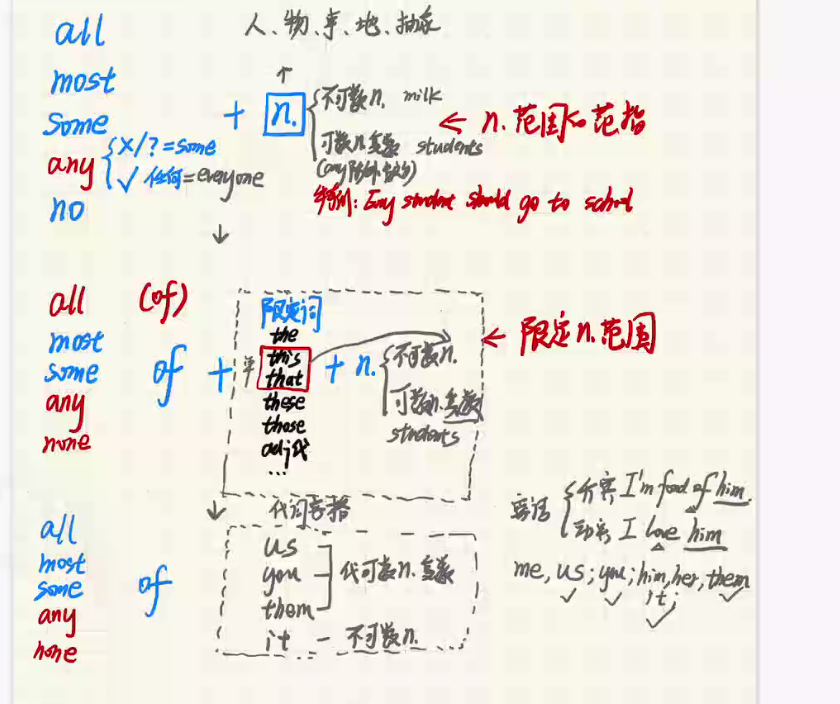 all
most
some
any { ×/? = some
✓ 任何 = everyone
no
人、物、事、地、抽象
↑
+ n. { 不可数n. milk
可数n.复数 students
(any 除外
← n. 范围 范指
特例: Any student should go to school
↓
all (of)
most
some
any
none
of +
限定词
the
单 this
that
these
those
adj代
...
+ n. { 不可数n.
可数n.复数
students
← 限定n.范围
↓
代词宾格
all
most
some
any
none
of
us
you
them
代可数n.复数
it — 不可数n.
宾语 { 介宾 I'm fond of him.
动宾 I love him
me, us; you; him, her, them
it;